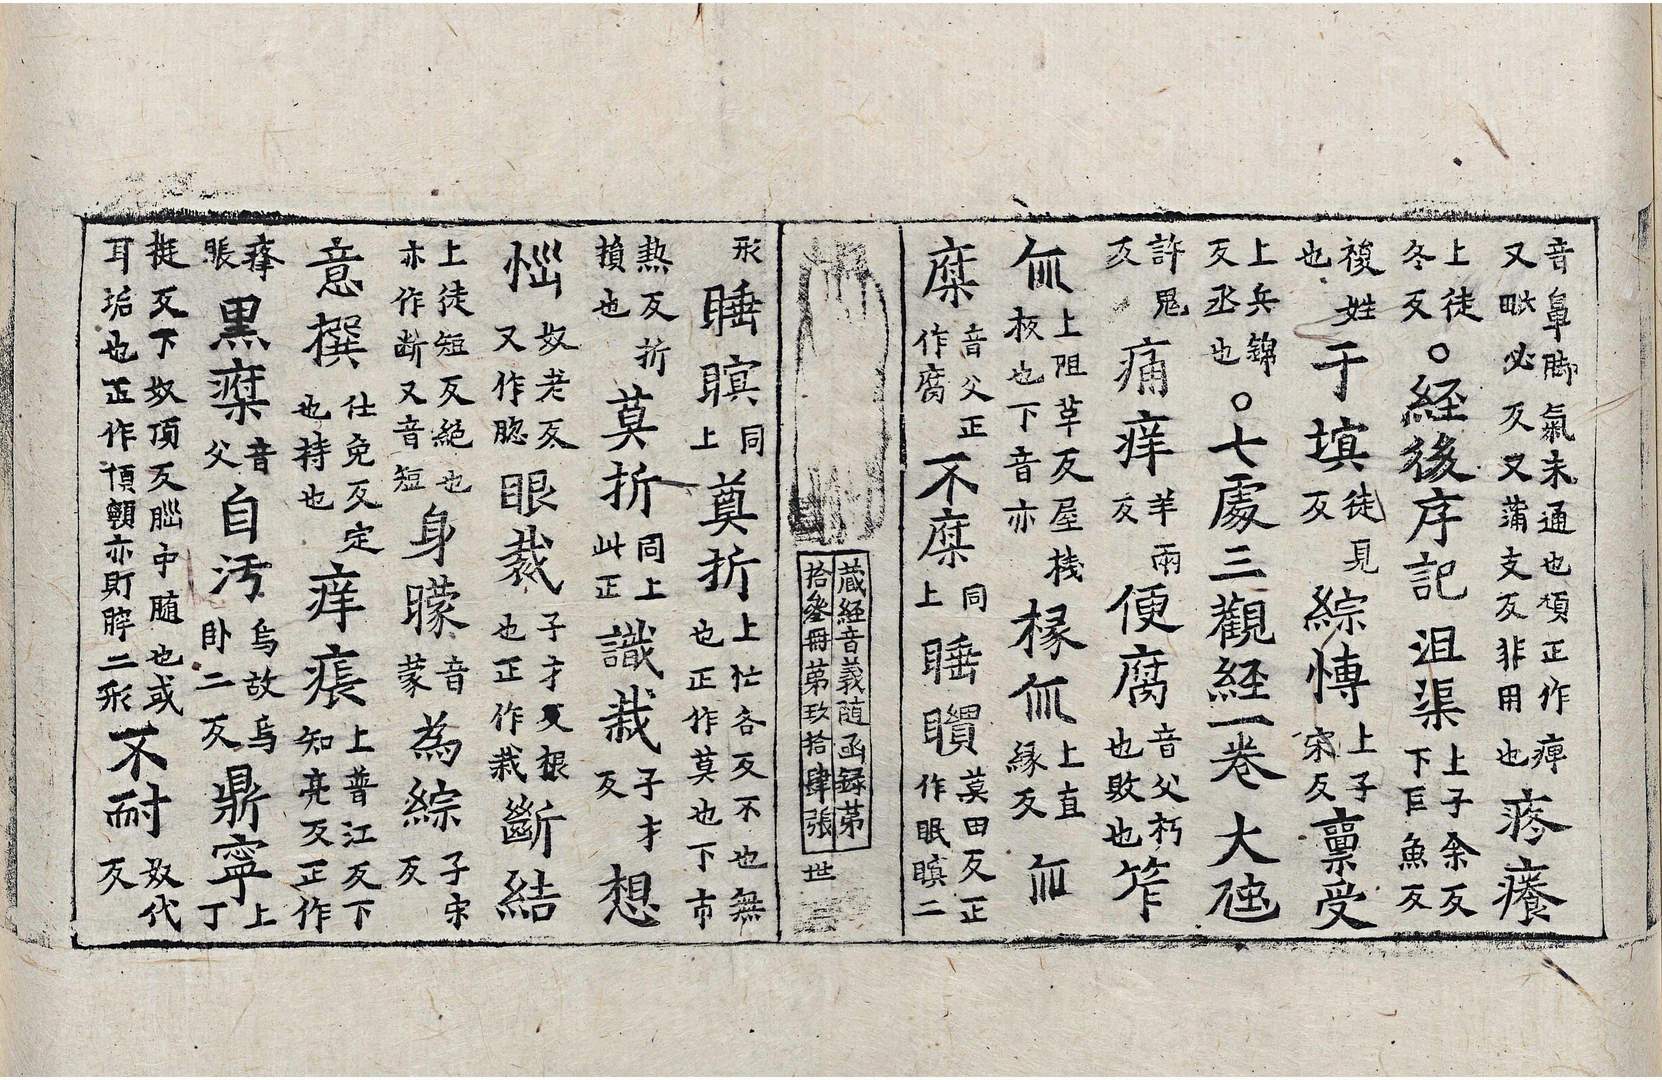 音皐脚氣未通也煩正作痺又毗必反又蒲支反非用也疼癢
上徒冬反。經後序記沮渠上子余反下巨魚反
複姓也于填徒見反綜慱上子宋反稟受
上兵錦反丞也。七處三觀經一卷大
許鬼反痛痒羊兩反便腐音父朽也敗也笮
上阻革反屋棧板也下音亦椽上直緣反
音父正作腐不同上睡莫田反正作眠瞑二
藏經音義随函録第
拾叅冊第玖拾肆張
世
形睡瞑同上莫折上忙各反不也無也正作莫也下市
熱反折損也莫折同上此正識栽子才反想
奴老反又作眼裁子才反根也正作栽斷結
上徒短反絕也亦作断又音短身曚音蒙為綜子宋反
意撰仕免反定也持也痒痮上普江反下知亮反正作
脹黑音父自汚烏故烏卧二反鼎寧上丁
挺反下奴頂反中随也或耳垢也正作亦二形不耐奴代反